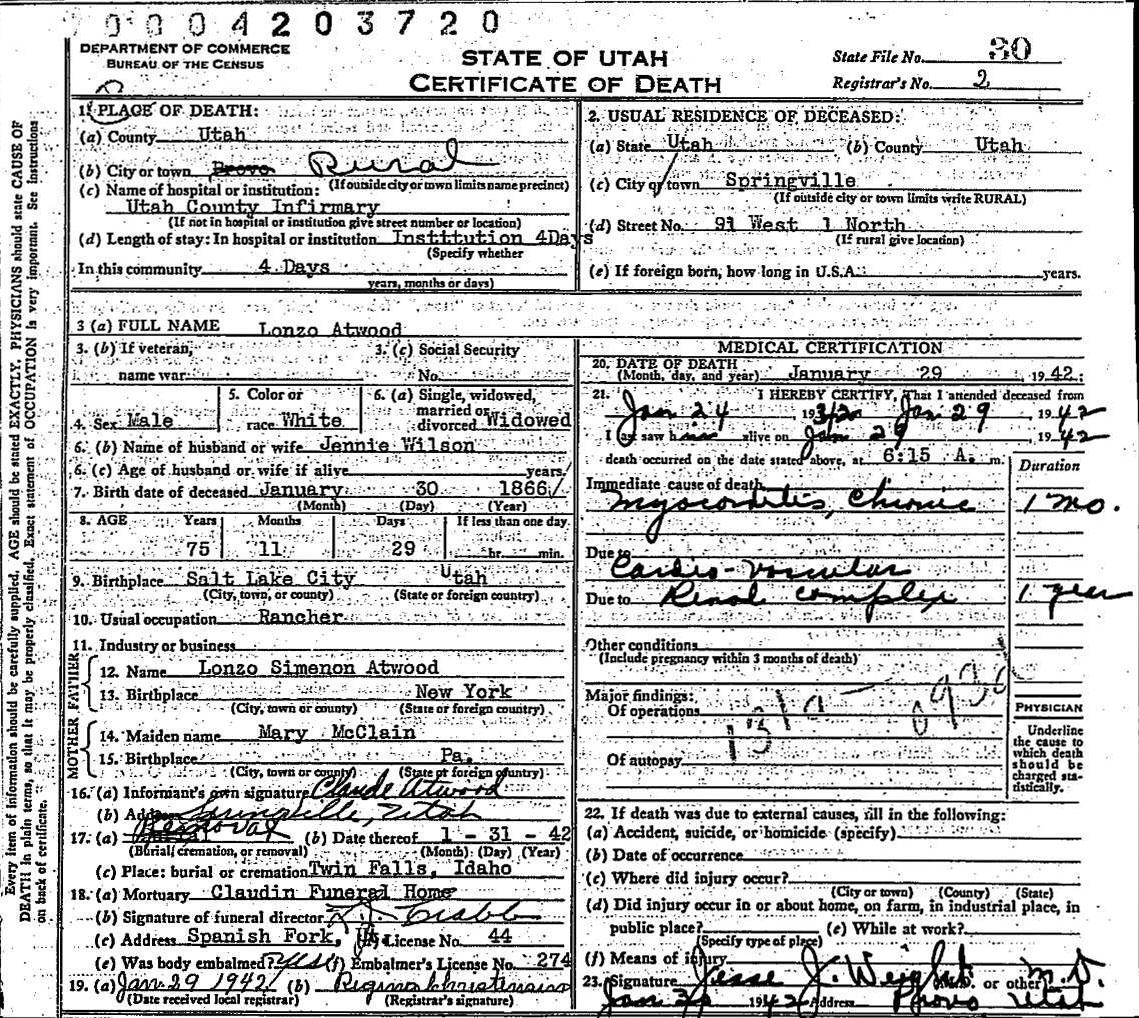 0004203720
DEPARTMENT OF COMMERCE
BUREAU OF THE CENSUS
STATE OF UTAH
CERTIFICATE OF DEATH
State File No. 80
Registrar's No. 2
Every item of information should be carefully supplied. AGE should be stated EXACTLY. PHYSICIANS should state CAUSE OF
DEATH in plain terms, so that it may be properly classified. Exact statement of OCCUPATION is very important. See instructions
on back of certificate.
1. PLACE OF DEATH:
(a) County Utah
(b) City or town Provo Rural
(If outside city or town limits name precinct)
(c) Name of hospital or institution:
Utah County Infirmary
(If not in hospital or institution give street number or location)
(d) Length of stay: In hospital or institution Institution 4Days
(Specify whether
In this community 4 Days
years, months or days)
2. USUAL RESIDENCE OF DECEASED:
(a) State Utah (b) County Utah
(c) City or town Springville
(If outside city or town limits write RURAL)
(d) Street No. 91 West 1 North
(If rural give location)
(e) If foreign born, how long in U.S.A. years.
3 (a) FULL NAME Lonzo Atwood
3. (b) If veteran, name war
3. (c) Social Security No.
4. Sex Male
5. Color or race White
6. (a) Single, widowed, married or divorced Widowed
6. (b) Name of husband or wife Jennie Wilson
6. (c) Age of husband or wife if alive years
7. Birth date of deceased January 30 1866
(Month) (Day) (Year)
8. AGE Years Months Days If less than one day
75 11 29 hr. min.
9. Birthplace Salt Lake City Utah
(City, town, or county) (State or foreign country)
10. Usual occupation Rancher
11. Industry or business
FATHER
12. Name Lonzo Simenon Atwood
13. Birthplace New York
(City, town or county) (State or foreign country)
MOTHER
14. Maiden name Mary McClain
15. Birthplace Pa.
(City, town or county) (State or foreign country)
16. (a) Informant's own signature Claude Atwood
(b) Address Springville, Utah
17. (a) Removal (b) Date thereof 1 - 31 - 42
(Burial, cremation, or removal) (Month) (Day) (Year)
(c) Place: burial or cremation Twin Falls, Idaho
18. (a) Mortuary Claudin Funeral Home
(b) Signature of funeral director
(c) Address Spanish Fork, License No. 44
(e) Was body embalmed? yes (f) Embalmer's License No. 274
19. (a) Jan 29 1942 (b) Regina Christensen
(Date received local registrar) (Registrar's signature)
MEDICAL CERTIFICATION
20. DATE OF DEATH
(Month, day, and year) January 29 1942
21. I HEREBY CERTIFY, That I attended deceased from
Jan 24 1942 Jan 29 1942
I last saw him alive on Jan 29 1942
death occurred on the date stated above, at 6:15 A. m.
Duration
Immediate cause of death
Myocarditis, Chronic 1 mo.
Due to
Cardio-vascular
Due to Renal complex 1 year
Other conditions
(Include pregnancy within 3 months of death)
Major findings:
Of operations
131a
Of autopsy
PHYSICIAN
Underline
the cause to
which death
should be
charged sta-
tistically.
22. If death was due to external causes, fill in the following:
(a) Accident, suicide, or homicide (specify)
(b) Date of occurrence
(c) Where did injury occur?
(City or town) (County) (State)
(d) Did injury occur in or about home, on farm, in industrial place, in
public place? (e) While at work?
(Specify type of place)
(f) Means of injury
23. Signature Jesse J. Weight M.D. or other M.D.
Jan 1942 Address Provo Utah